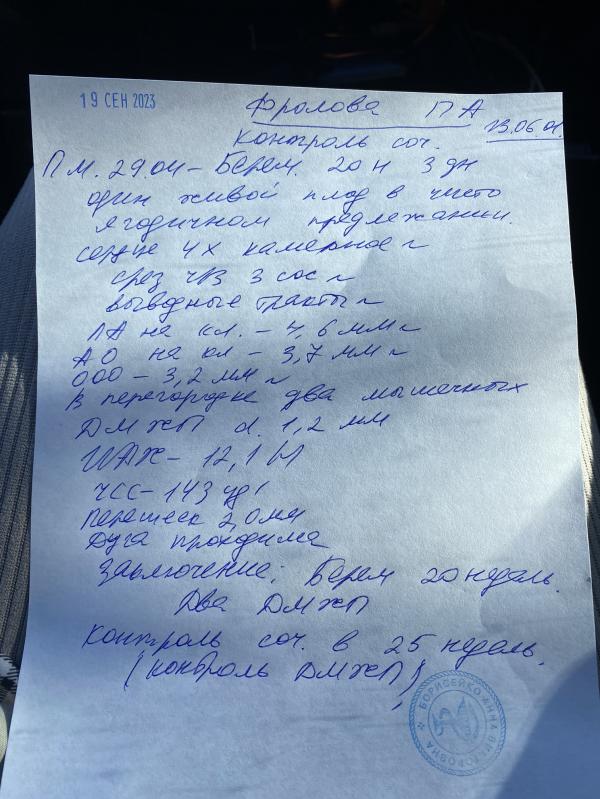 19 СЕН 2023
Фролова ПА
23.06.01.
контроль соч.
П.М. 29.04 - Берем. 20 н 3 дн
один живой плод в чисто
ягодичном предлежании.
сердце 4х камерное ~
срез ЧВ 3 сос ~
выводные тракты ~
ЛА на кл. - 4,6 мм ~
АО на кл - 3,7 мм ~
ООО - 3,2 мм ~
В перегородке два мышечных
ДМЖП d. 1,2 мм
ИАЖ - 12,1 N
ЧСС - 143 уд/
перешеек 2,0мм
Дуга проходима
Заключение: Берем 20 недель.
Два ДМЖП
контроль соч. в 25 недель.
(контроль ДМЖП)
БОРИСЕЙКО АННА ВИКТОРОВНА